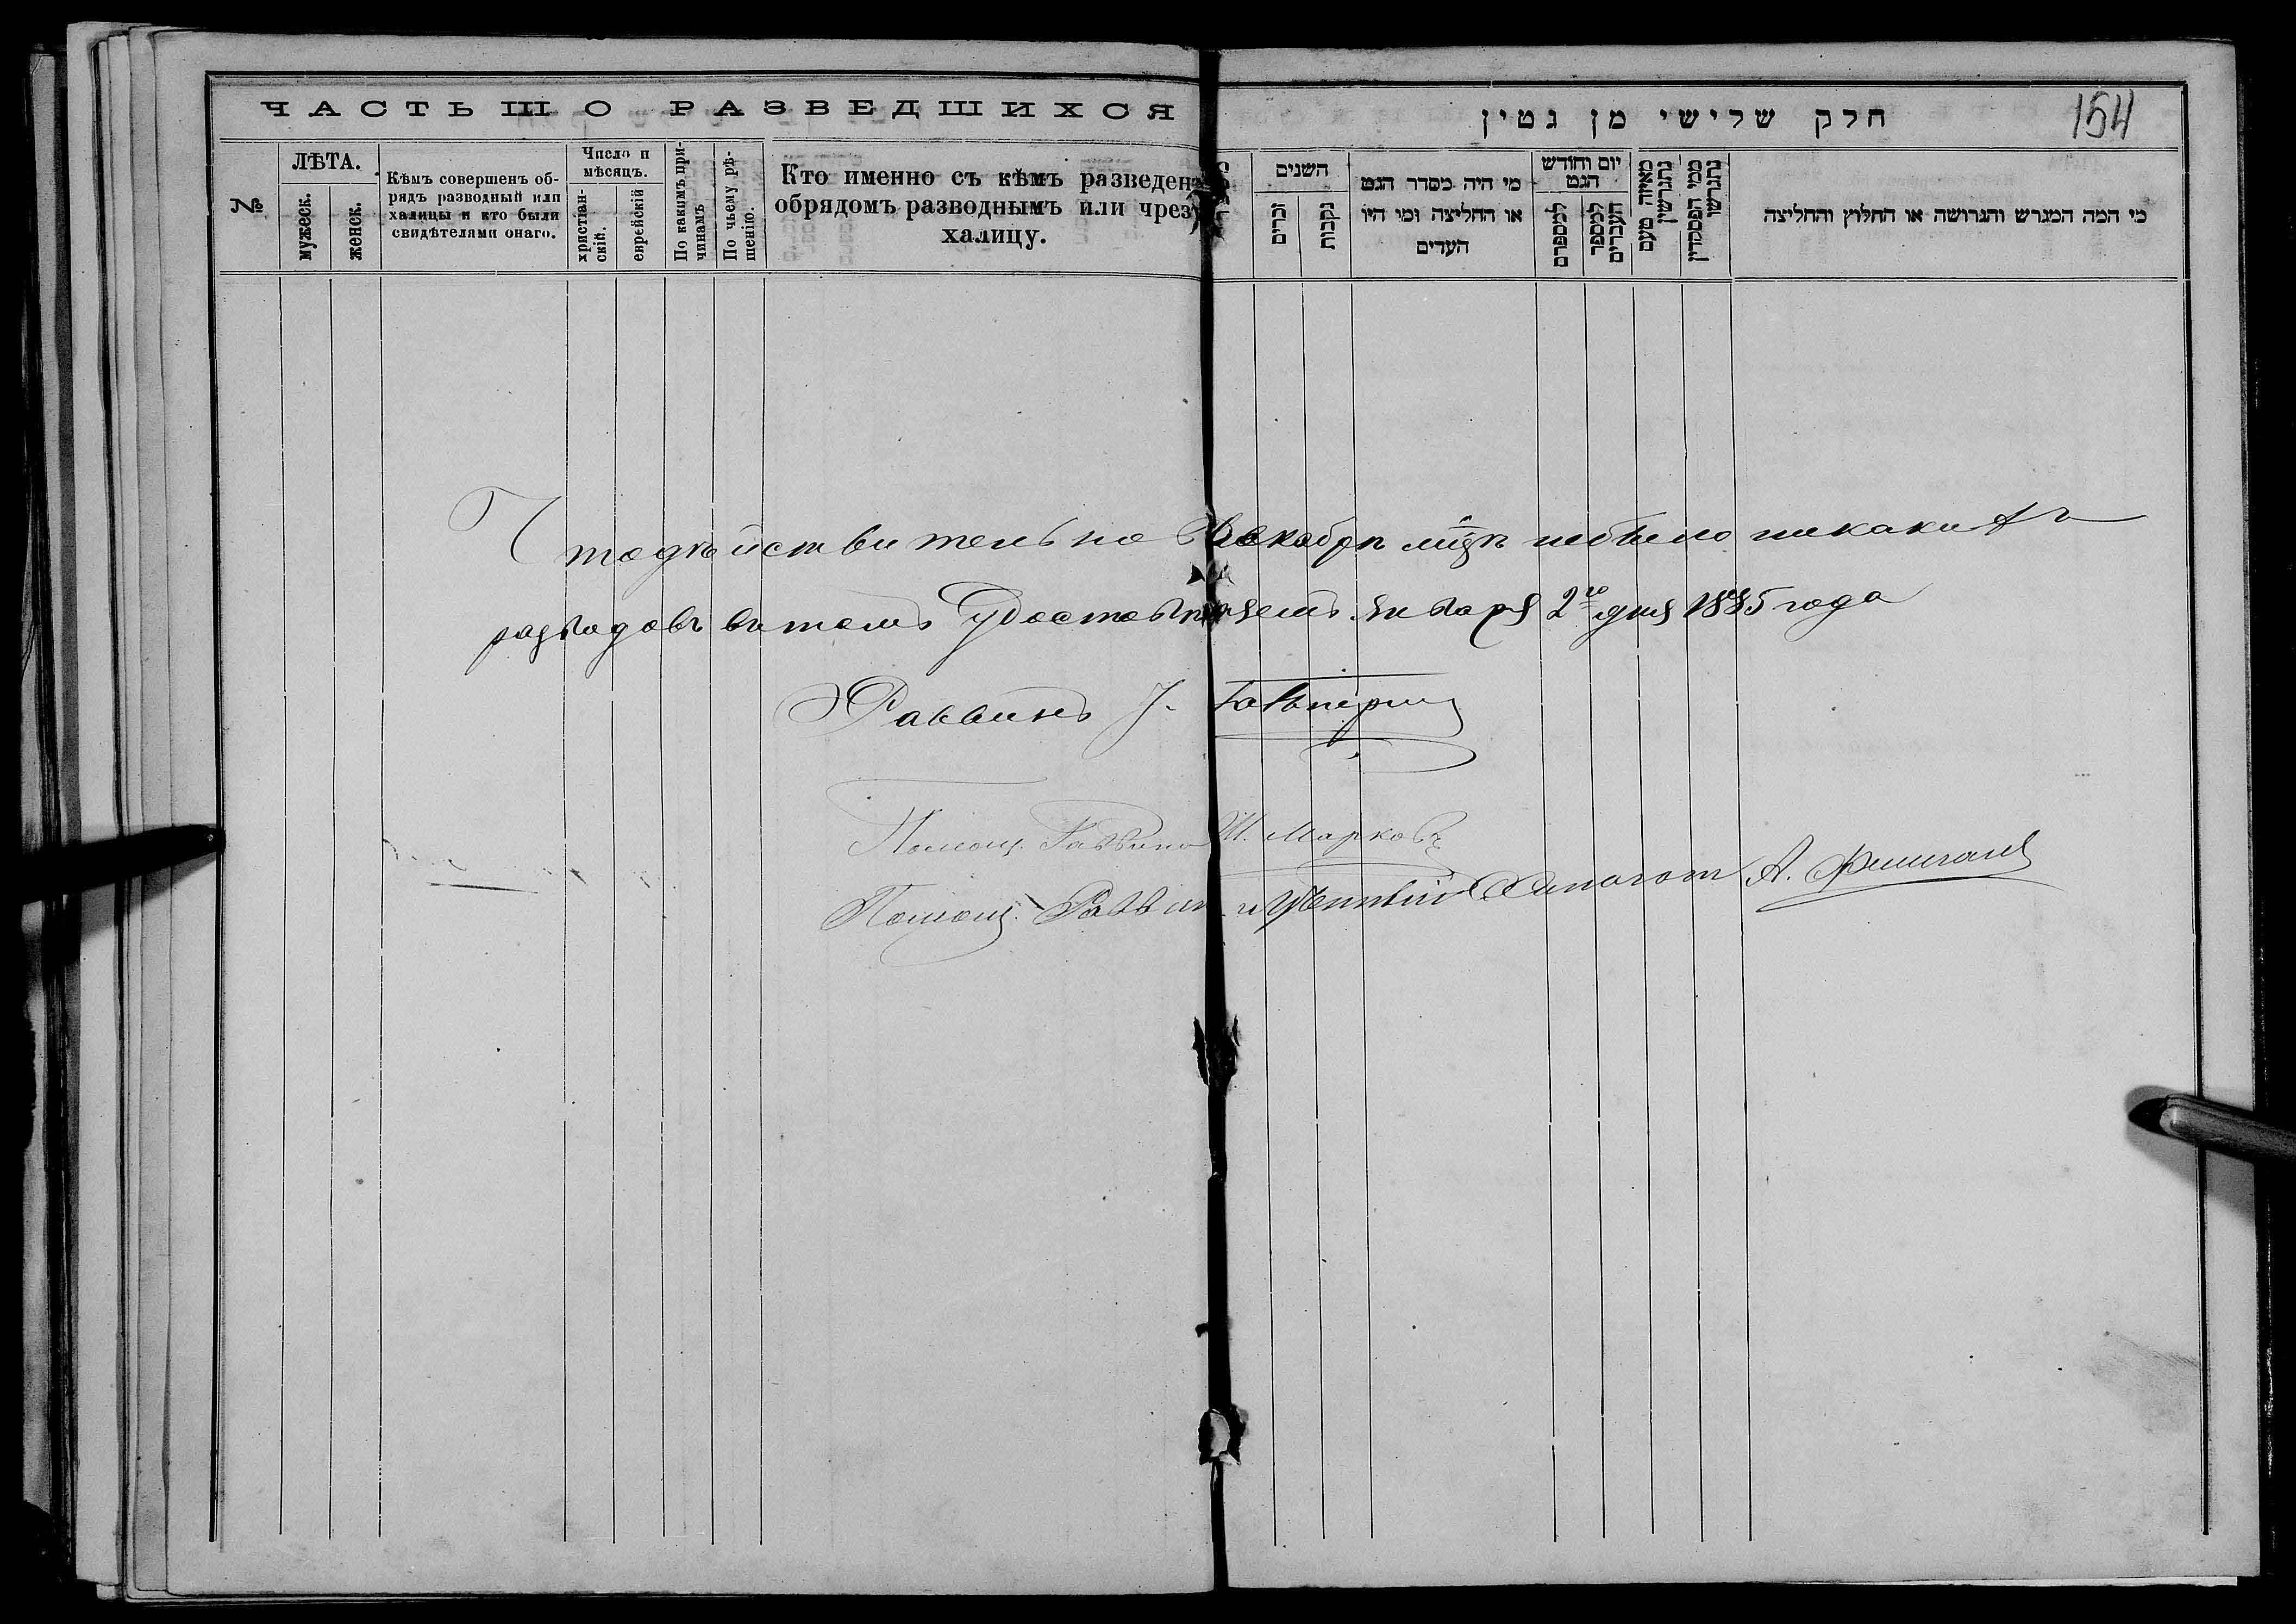 ЧАСТЬ III О РАЗВЕДШИХСЯ
№
ЛѢТА.
мужеск.
женск.
Кѣмъ совершенъ об-
рядъ разводный или
халицы и кто были
свидѣтелями онаго.
Число и
мѣсяцъ.
христіан-
скій.
еврейскій
По какимъ при-
чинамъ
По чьему рѣ-
шенію.
Кто именно съ кѣмъ разведенъ
обрядомъ разводнымъ или чрезъ
халицу.
חלק שלישי מן גטין
154
השנים
זכרים
נקבות
מי היה מסדר הגט
או החליצה ומי היו
העדים
יום וחודש
הגט
למספרם
למספר
העברים
מאיזה טעם
נתגרשין
ממי הפסקדין
נתגרשו
מי המה המגרש והגרושה או החלוץ והחליצה
Что действительно въ Декабрѣ мцѣ небыло никакихъ
разводовъ въ томъ удостовѣряемъ Января 2го дня 1885 года
Раввинъ Г. Гальперинъ
Помощ. Раввина И. Марковъ
Помощ. Раввин. и Ученый Синагоги А.